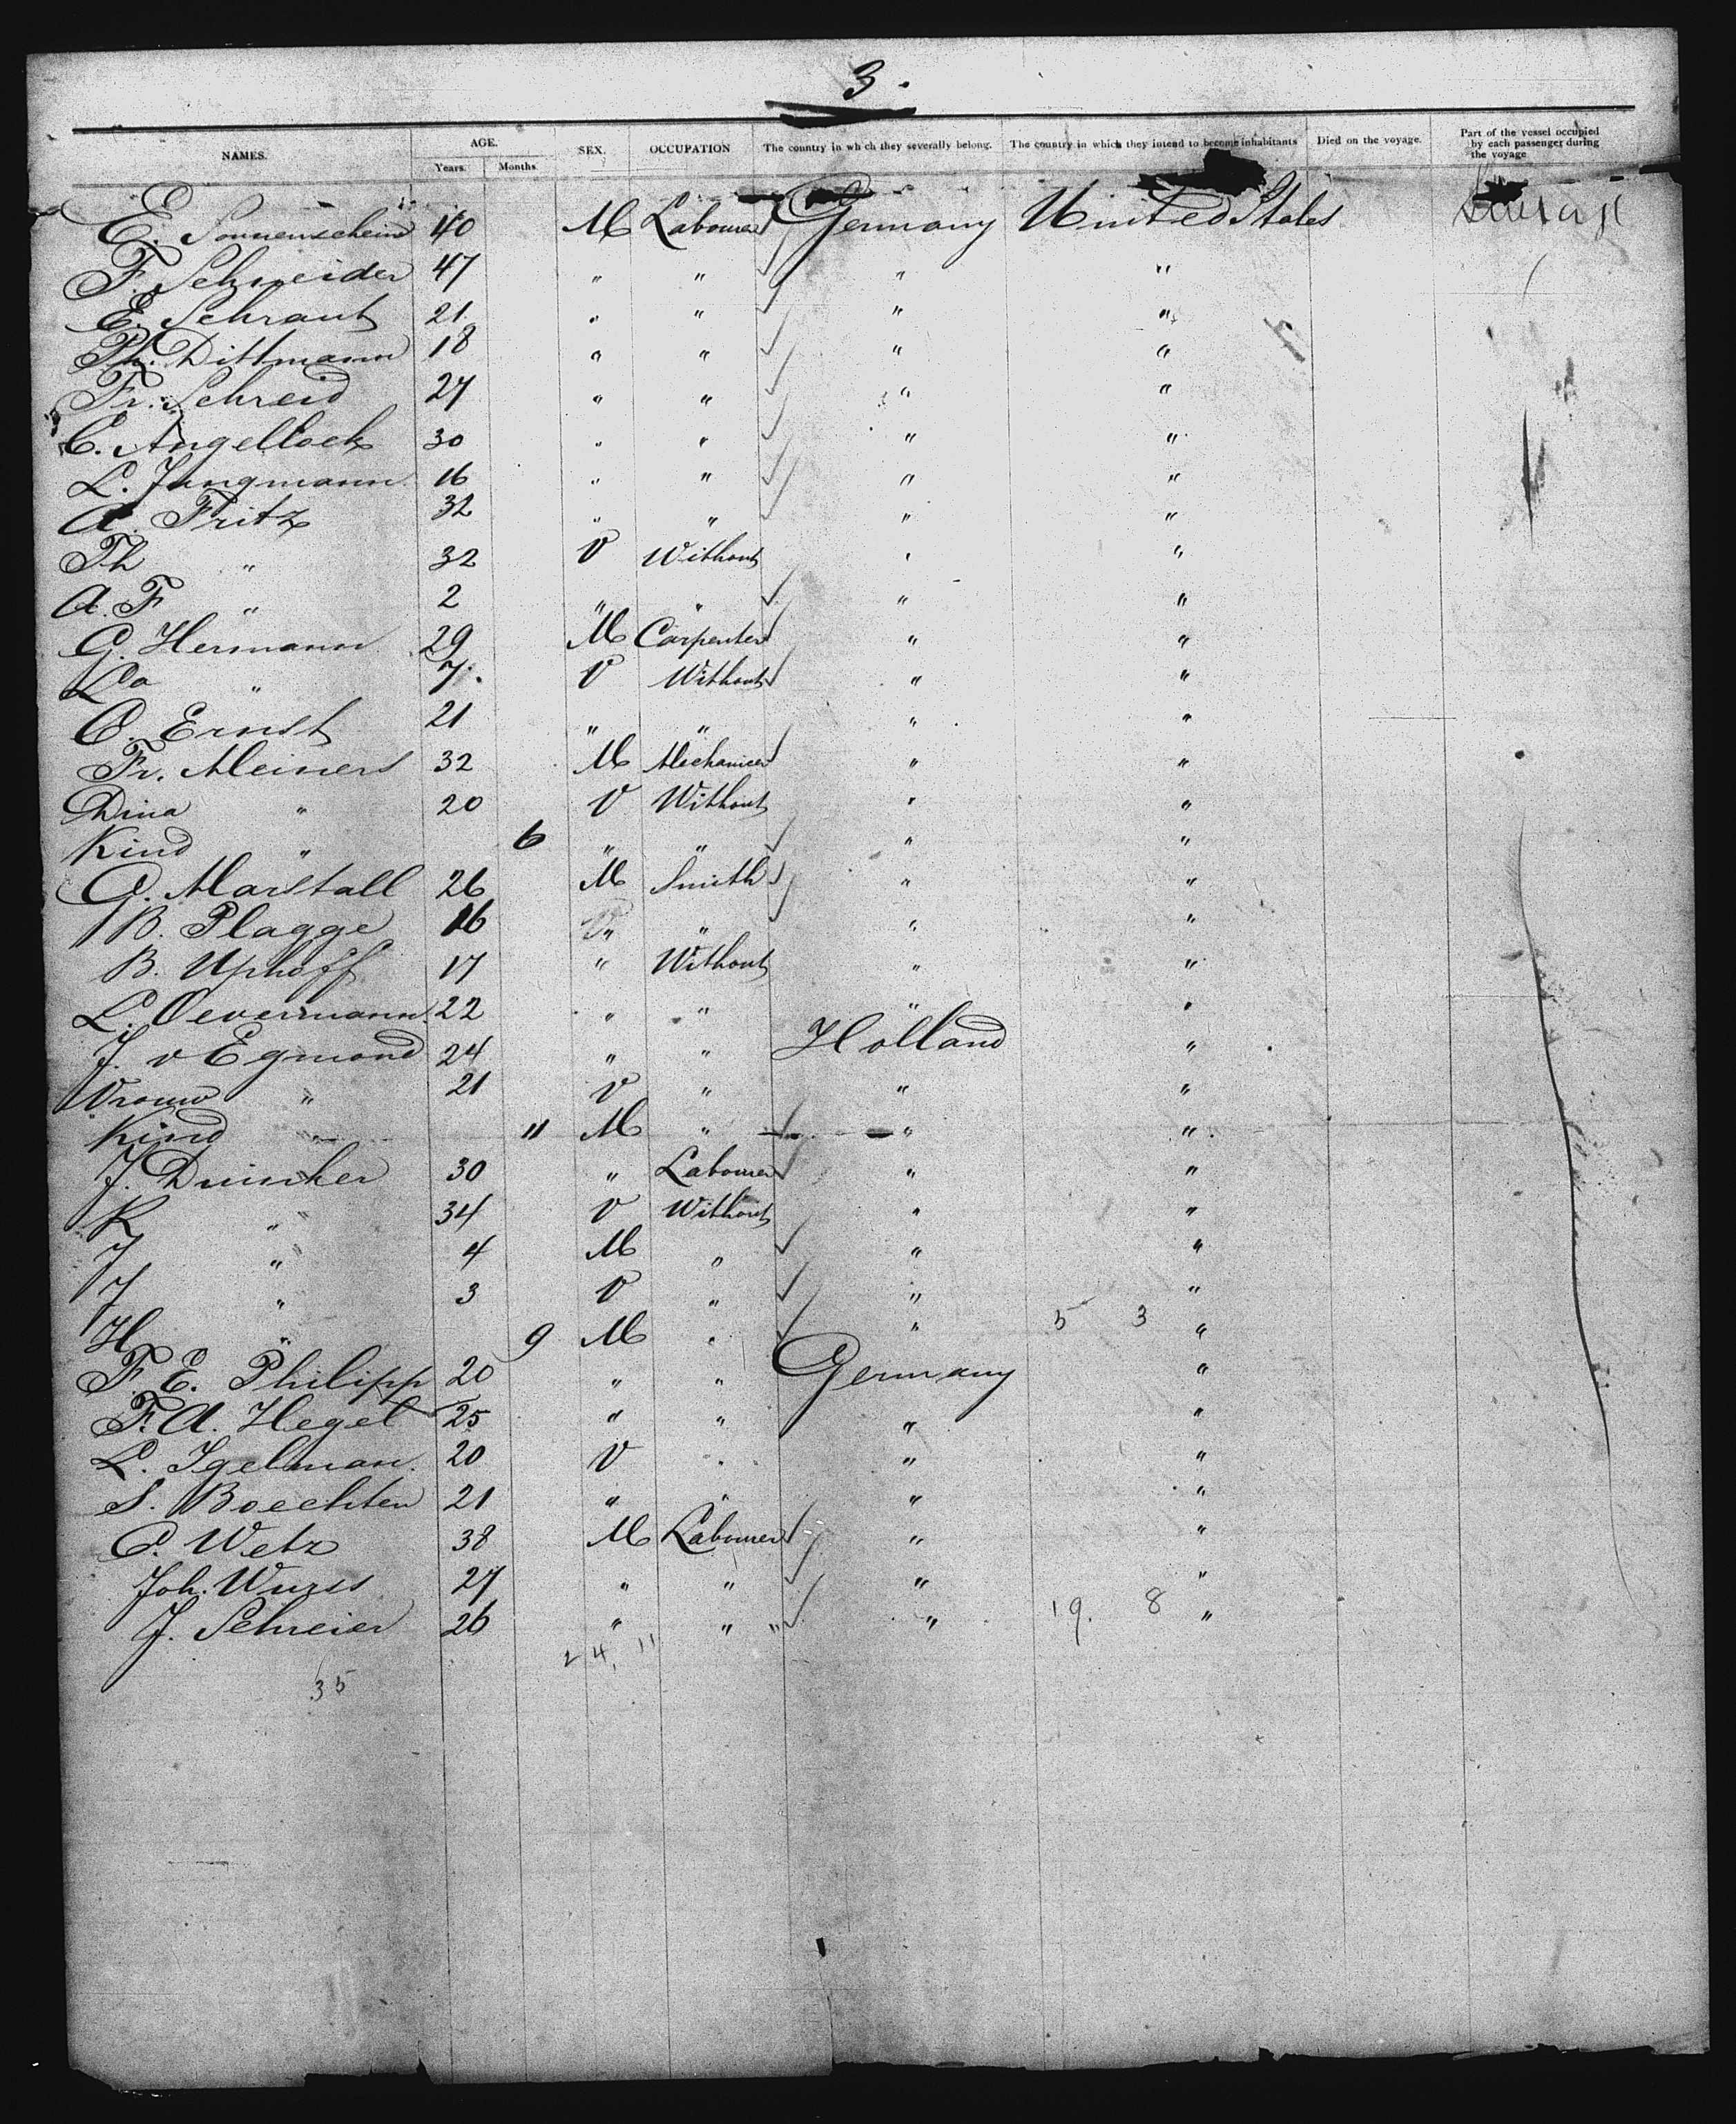 3.
NAMES. AGE. SEX. OCCUPATION The country in wh ch they severally belong. The country in which they intend to become inhabitants Died on the voyage. Part of the vessel occupied by each passenger during the voyage
Years. Months.
E. Sonnenschein 40 M Labourer Germany United States
F. Schneider 47 " " " "
E. Schraut 21. " " " "
Ph. Dittmann 18 " " " "
Fr. Schreid 27 " " " "
C. Angelloch 30 " " " "
L. Jungmann 16 " " " "
A. Fritz 32 " " " "
Th " 32 V Without " "
A. F " 2 " " " "
G. Hermann 29 M Carpenter " "
" 7. V Without " "
C. Ernst 21 " " " "
Fr. Meiners 32 M Mechanicer " "
Dina " 20 V Without " "
Kind " 6 " " " "
A. Marstall 26 M Smith " "
B. Plagge 16 " " " "
B. Uphoff 17 " Without " "
L. Oevermann. 22 " " " "
J. v Egmond 24 " " Holland "
Vrouw " 21 V " " "
Kind " 11 M " " "
J. Duincker 30 " Labourer " "
K " 34 V Without " "
J " 4 M " " "
J " 3 V " " "
H " 9 M " " 5 3 "
F. E. Philipp 20 " " Germany "
F. A. Hegel 25 " " " "
L. Igelman. 20 V " " "
S. Boechten 21 " " " "
C. Wetz 38 M Labourer " "
Joh. Wurss 27 " " " "
J. Schreier 26 " " " " 19. 8 "
24, 11
35